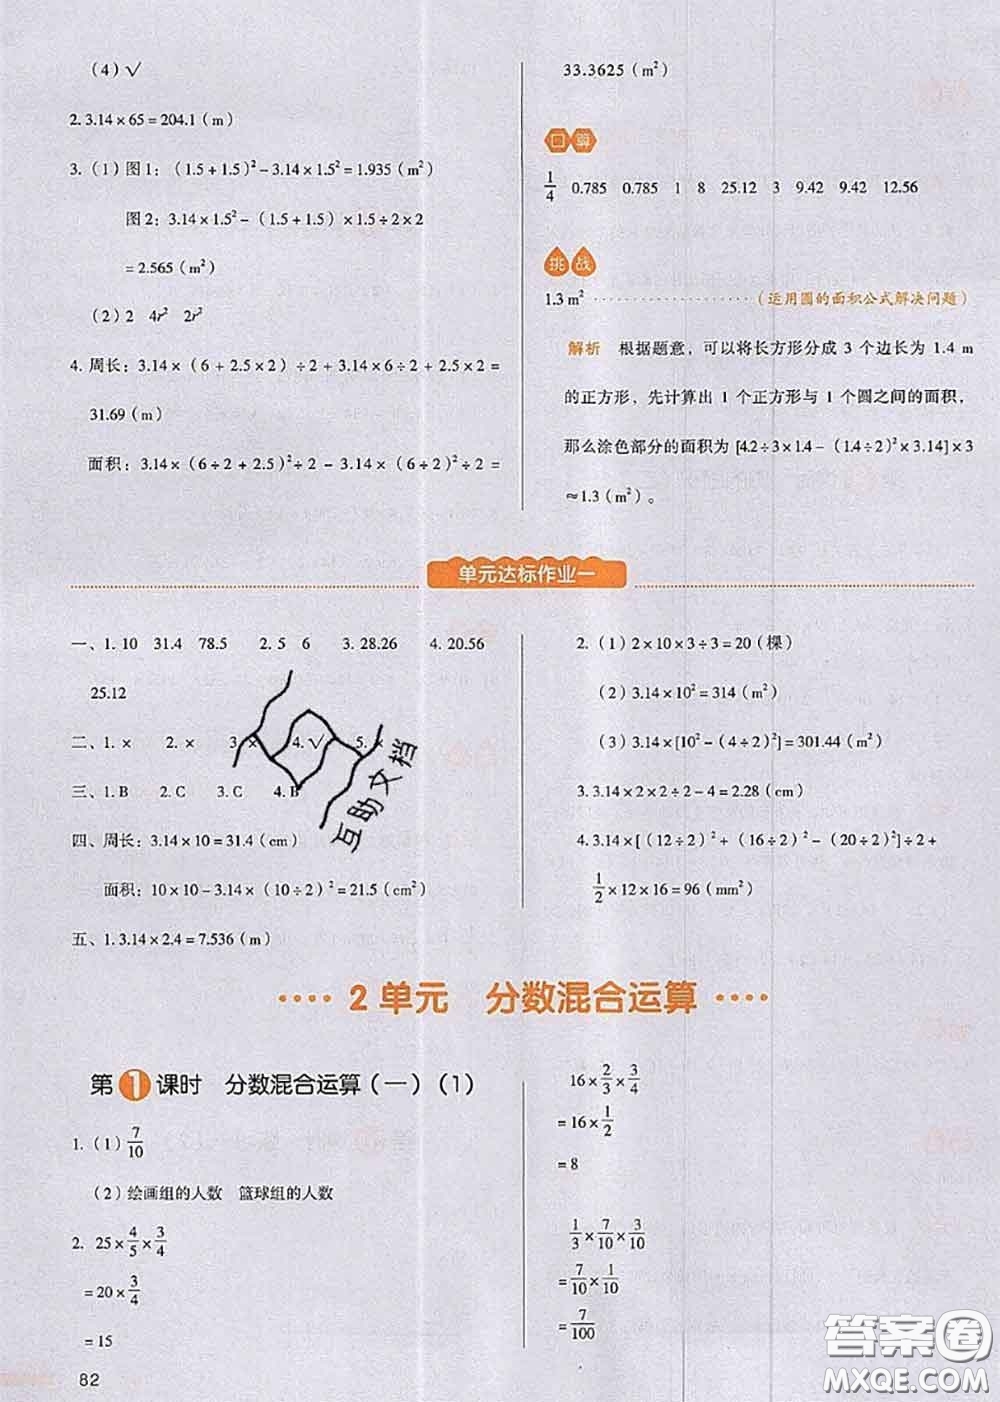 (4)√
2. 3.14×65=204.1(m)
3. (1)图1：(1.5+1.5)²-3.14×1.5²=1.935(m²)
图2：3.14×1.5²-(1.5+1.5)×1.5÷2×2
=2.565(m²)
(2)2 4r² 2r²
4. 周长：3.14×(6+2.5×2)÷2+3.14×6÷2+2.5×2=
31.69(m)
面积：3.14×(6÷2+2.5)²÷2-3.14×(6÷2)²÷2=
33.3625(m²)
口算
1/4 0.785 0.785 1 8 25.12 3 9.42 9.42 12.56
挑战
1.3 m² ····················(运用圆的面积公式解决问题)
解析 根据题意，可以将长方形分成 3 个边长为 1.4 m
的正方形，先计算出 1 个正方形与 1 个圆之间的面积，
那么涂色部分的面积为 [4.2÷3×1.4-(1.4÷2)²×3.14]×3
≈1.3(m²)。
单元达标作业一
一、1. 10 31.4 78.5 2. 5 6 3. 28.26 4. 20.56
25.12
二、1. × 2. × 3. × 4. √ 5. ×
三、1. B 2. C 3. C 4. B
四、周长：3.14×10=31.4(cm)
面积：10×10-3.14×(10÷2)²=21.5(cm²)
五、1. 3.14×2.4=7.536(m)
2. (1)2×10×3÷3=20(棵)
(2)3.14×10²=314(m²)
(3)3.14×[10²-(4÷2)²]=301.44(m²)
3. 3.14×2×2÷2-4=2.28(cm)
4. 3.14×[(12÷2)²+(16÷2)²-(20÷2)²]÷2+
1/2×12×16=96(mm²)
互助文档
2 单元 分数混合运算
第1课时 分数混合运算(一)(1)
1. (1)7/10
(2)绘画组的人数 篮球组的人数
2. 25×4/5×3/4
=20×3/4
=15
16×2/3×3/4
=16×1/2
=8
1/3×7/10×3/10
=7/10×1/10
=7/100
82
答案圈
MXQE.COM